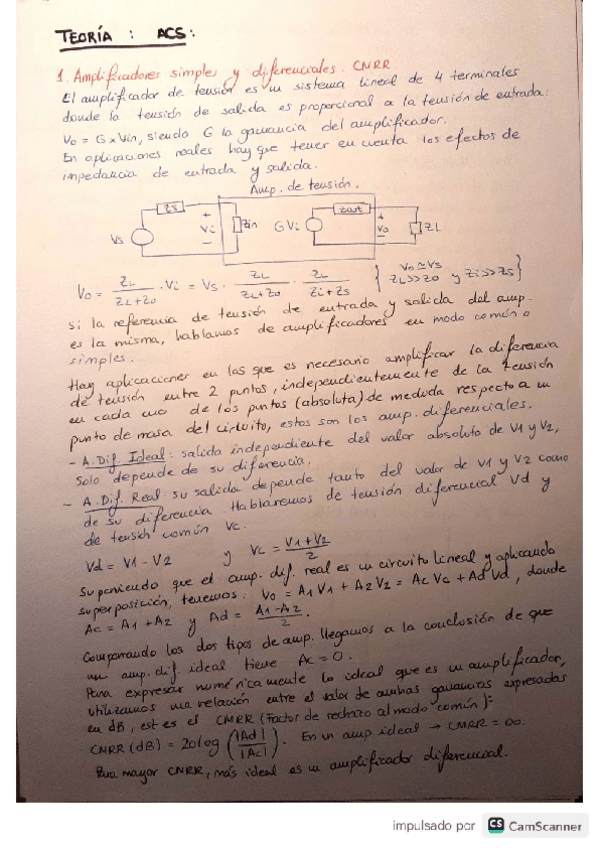 TEORÍA : ACS:
1. Amplificadores simples y diferenciales. CNRR
El amplificador de tensión es un sistema lineal de 4 terminales
donde la tensión de salida es proporcional a la tensión de entrada:
Vo = G x Vin, siendo G la ganancia del amplificador.
En aplicaciones reales hay que tener en cuenta los efectos de
impedancia de entrada y salida.
Amp. de tensión.
Zs Zout
Vs Vi Zin GVi Vo ZL
Vo = ZL / ZL+Zo · Vi = Vs · ZL / ZL+Zo · ZL / Zi+Zs { Vo ≃ Vs ZL>>Zo y Zi>>Zs }
Si la referencia de tensión de entrada y salida del amp.
es la misma, hablamos de amplificadores en modo común o
simples.
Hay aplicaciones en las que es necesario amplificar la diferencia
de tensión entre 2 puntos, independientemente de la tensión
en cada uno de los puntos (absoluta) de medida respecto a un
punto de masa del circuito, estos son los amp. diferenciales.
- A. Dif. Ideal: salida independiente del valor absoluto de V1 y V2,
Solo depende de su diferencia.
- A. Dif. Real su salida depende tanto del valor de V1 y V2 como
de su diferencia Hablaremos de tensión diferencial Vd y
de tensión común Vc.
Vd = V1 - V2 y Vc = V1+V2 / 2
Suponiendo que el amp. dif. real es un circuito lineal y aplicando
superposición, tenemos: Vo = A1 V1 + A2 V2 = Ac Vc + Ad Vd, donde
Ac = A1 + A2 y Ad = A1-A2 / 2.
Comparando los dos tipos de amp. llegamos a la conclusión de que
un amp. dif ideal tiene Ac = 0.
Para expresar numéricamente lo ideal que es un amplificador,
utilizamos una relación entre el valor de ambas ganancias expresadas
en dB, est es el CMRR (Factor de rechazo al modo común):
CNRR (dB) = 20log (|Ad| / |Ac|). En un amp ideal → CMRR = ∞.
Para mayor CNRR, más ideal es un amplificador diferencial.
impulsado por CS CamScanner